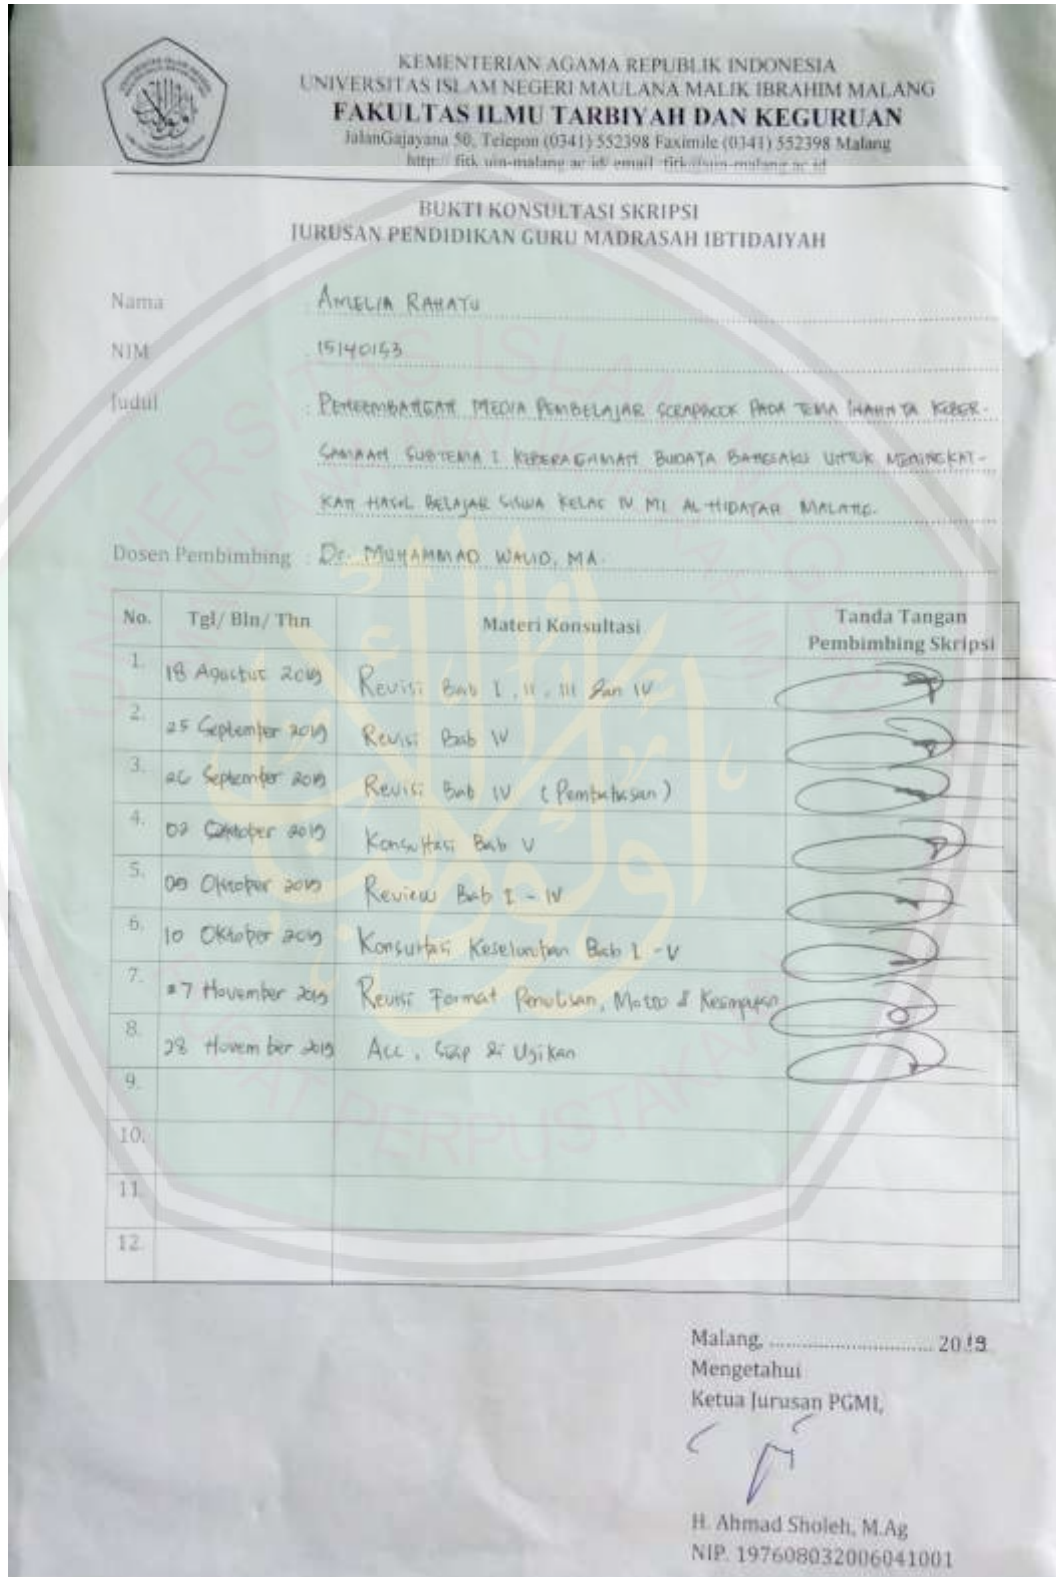 KEMENTERIAN AGAMA REPUBLIK INDONESIA
UNIVERSITAS ISLAM NEGERI MAULANA MALIK IBRAHIM MALANG
FAKULTAS ILMU TARBIYAH DAN KEGURUAN
JalanGajayana 50, Telepon (0341) 552398 Faximile (0341) 552398 Malang
http:// fitk.uin-malang.ac.id/ email :fitk@uin-malang.ac.id
BUKTI KONSULTASI SKRIPSI
JURUSAN PENDIDIKAN GURU MADRASAH IBTIDAIYAH
Nama : AMELIA RAHAYU
NIM : 15140153
Judul : PENGEMBANGAN MEDIA PEMBELAJAR SCRAPBOOK PADA TEMA INAHNYA KEBER-
SAMAAN SUBTEMA 1 KEBERAGAMAN BUDAYA BANGSAKU UNTUK MENINGKAT-
KAN HASIL BELAJAR SISWA KELAS IV MI AL-HIDAYAH MALANG.
Dosen Pembimbing : Dr. MUHAMMAD WALID, MA.
No. Tgl/ Bln/ Thn Materi Konsultasi Tanda Tangan Pembimbing Skripsi
1. 18 Agustus 2019 Revisi Bab I, II, III dan IV
2. 25 September 2019 Revisi Bab IV
3. 26 September 2019 Revisi Bab IV (Pembahasan)
4. 02 Oktober 2019 Konsultasi Bab V
5. 09 Oktober 2019 Review Bab I - IV
6. 10 Oktober 2019 Konsultasi Keseluruhan Bab I - V
7. 7 November 2019 Revisi Format Penulisan, Motto & Kesimpulan
8. 28 November 2019 Acc, Siap di Ujikan
9.
10.
11.
12.
Malang, .............................. 2019
Mengetahui
Ketua Jurusan PGMI,
H. Ahmad Sholeh, M.Ag
NIP. 197608032006041001